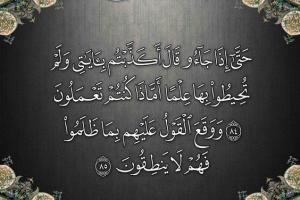 حَتَّىٰٓ إِذَا جَآءُو قَالَ أَكَذَّبْتُم بِـَٔايَٰتِى وَلَمْ
تُحِيطُوا۟ بِهَا عِلْمًا أَمَّاذَا كُنتُمْ تَعْمَلُونَ
٨٤ وَوَقَعَ ٱلْقَوْلُ عَلَيْهِم بِمَا ظَلَمُوا۟
فَهُمْ لَا يَنطِقُونَ ٨٥